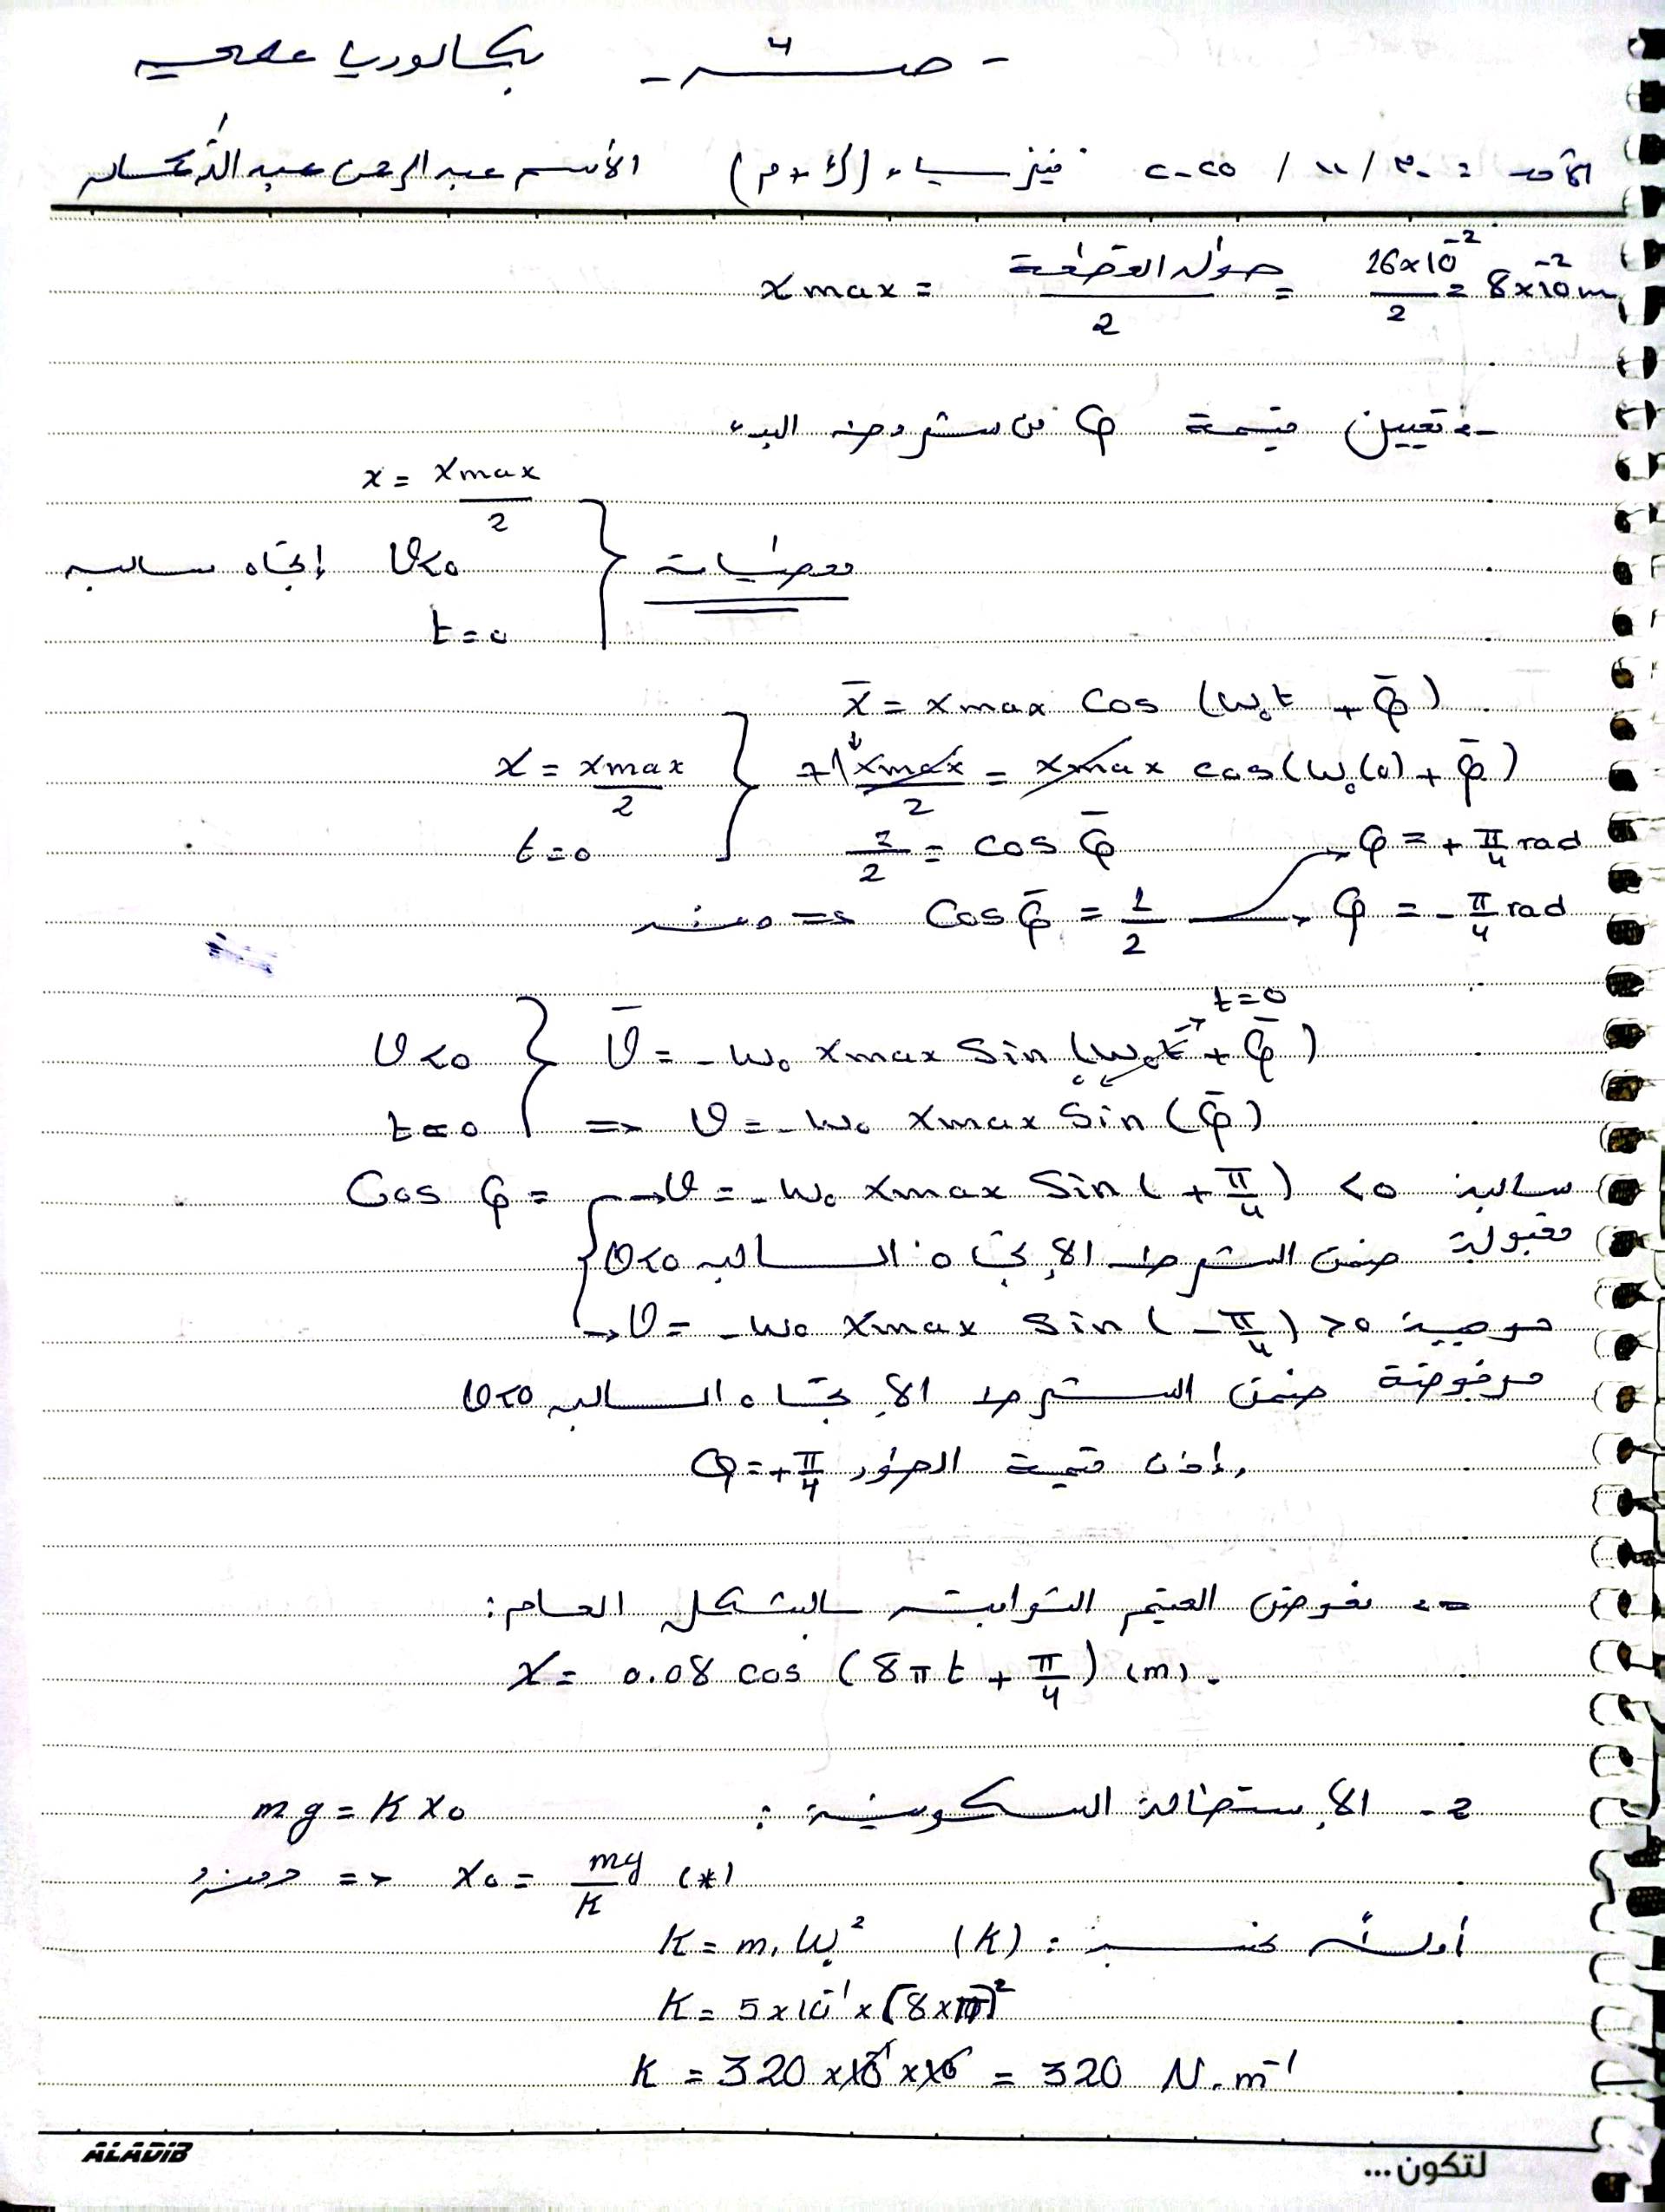 - حـــــ - بكالوريا علمي
الأحد = ٣٠ / ١١ / ٢٠٢٥ فيزيــــاء (ك+م) الأســم عبد الرحمن عبد الله
x max = طول القطعة / 2 = 16x10^-2 / 2 = 8x10^-2 m
-: تعيين قيمة φ من شروط البدء
x = xmax / 2
معطيات } v<0 إتجاه سالب
t=0
x̄ = xmax cos (ω₀t + φ̄)
x = xmax / 2 } +1 xmax / 2 = xmax cos(ω₀(0) + φ̄)
t=0 } 1/2 = cos φ̄ → φ = + π/4 rad
ومنه => Cos φ̄ = 1/2 → φ = - π/4 rad
t=0
v<0 } v̄ = -ω₀ xmax sin (ω₀t + φ̄)
0
t=0 } => v = -ω₀ xmax sin (φ̄)
Cos φ = → v = -ω₀ xmax sin ( + π/4 ) <0 سالبة
مقبولة ضمن الشرط الإتجاه الســالب v<0
→ v = -ω₀ xmax sin ( - π/4 ) >0 موجبة
مرفوضة ضمن الشرط الإتجاه السالب v<0
إذن قيمة الطور φ = + π/4
=: نعوض القيم الثوابت بالشكل العام:
x = 0.08 cos (8πt + π/4) (m).
2- الإستطالة السكونية : mg = K x₀
ومنه => x₀ = mg / K (*)
أولاً نحسب (K) : K = m . ω₀²
K = 5x10^-1 x (8xπ)²
K = 320 x10^-1 x10 = 320 N.m^-1
ALADIB
لتكون...